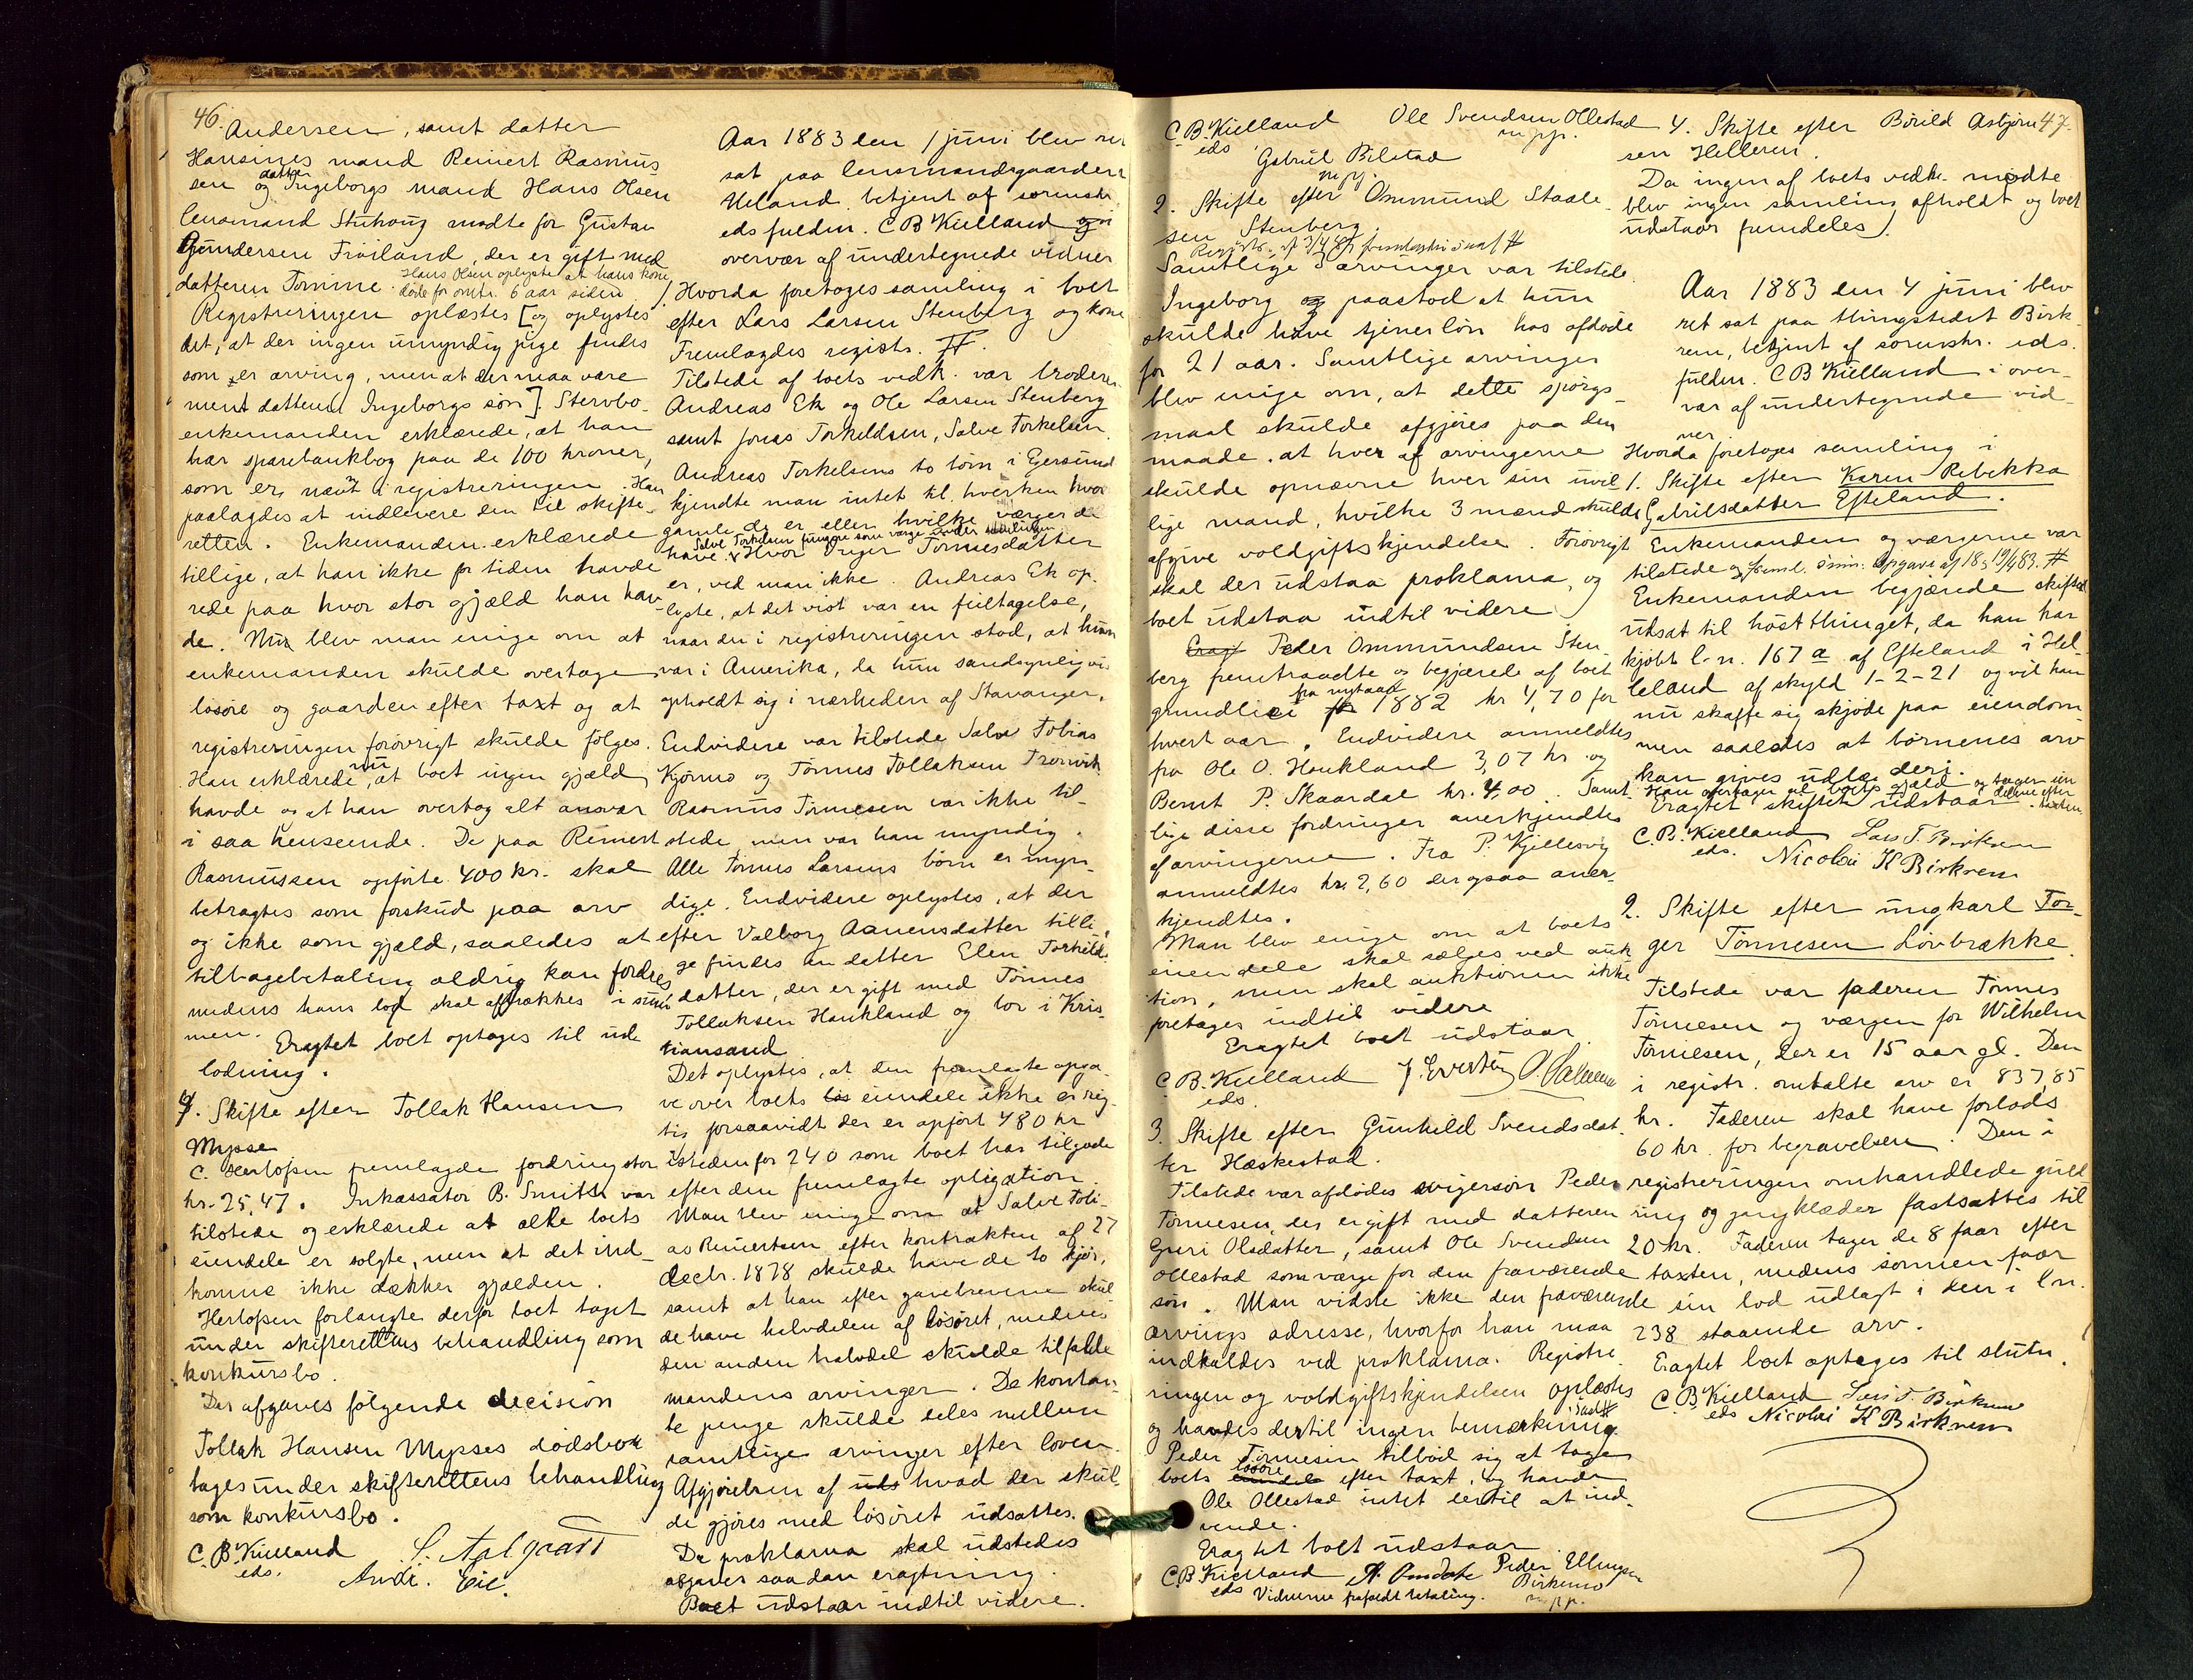 46.
Andersen, samt datter
Hansines mand Reinert Rasmus
sen og datter Ingeborgs mand Hans Olsen
lensmand Stuhaug mødte for Gustav
Gundersen Frøiland, der er gift med
datteren Tomine. Hans Olsen oplyste at hans kone
døde for omtr. 6 aar siden
Registreringen oplæstes [og oplystes
det, at der ingen umyndig pige findes
som er arving, men at der maa være
ment datteren Ingeborgs søn]. Stervbo-
enkemanden erklærede, at han
har sparebankbog paa de 100 kroner,
som er nævt i registreringen. Han
paalagdes at indlevere den til skifte-
retten. Enkemanden erklærede
tillige, at han ikke for tiden havde
rede paa hvor stor gjæld han hav
de. Nu blev man enige om at
enkemanden skulde overtage
løsøre og gaarden efter taxt og at
registreringen forøvrigt skulde følges.
Han erklærede nu, at boet ingen gjæld
havde og at han overtog alt ansvar
i saa henseende. De paa Reinert
Rasmussen opførte 400 kr. skal
betragtes som forskud paa arv
og ikke som gjæld, saaledes at
tilbagebetaling aldrig kan fordres
medens hans lod skal aftrækkes i sum
men.
Eragtet boet optages til ud-
lodning.
4. Skifte efter Tollak Hansen
Mysse
C. Hertopen fremlagde fordring stor
kr. 25,47. Inkassator B. Smith var
tilstede og erklærede at alle boets
eiendele er solgte, men at det ind-
komne ikke dækker gjælden.
Hertopen forlangte derfor boet taget
under skifterettens behandling som
konkursbo.
Der afgaves følgende decision
Tollak Hansen Mysses dødsbo
tages under skifterettens behandling
som konkursbo.
C. B. Kielland
eds.
Aar 1883 den 1 juni blev ret
sat paa lensmandsgaarden
Heland betjent af sorenskr.
eds fuldm. C B Kielland i
overvær af undertegnede vidner
1. Hvorda foretoges samling i boet
efter Lars Larsen Stenberg og kone
Fremlagdes registr. #.
Tilstede af boets vedk. var broderen
Andreas Ek og Ole Larsen Stenberg
samt Jonas Torkeldsen, Salve Torkelsen.
Andreas Torkelsens to børn i Egersund
kjendte man intet til, hverken hvor
gamle de er eller hvilke værger de
have. Salve Torkelsen fungere som værge under samlingen
Hvor Inger Tønnesdatter
er, ved man ikke. Andreas Ek op-
lyste, at det vist var en feiltagelse,
naar der i registreringen stod, at hun
var i Amerika, da hun sandsynligvis
opholdt sig i nærheden af Stavanger.
Endvidere var tilstede Salve Tobias
Kjørmo og Tønnes Tollaksen Trønvik
Rasmus Tønnesen var ikke til-
stede, men var han myndig.
Alle Tønnes Larsens børn er myn-
dige. Endvidere oplystes, at der
efter Valborg Aanensdatter tilli-
ge findes en datter Elen Torkilds
datter, der er gift med Tønnes
Tollaksen Haukland og bor i Kris-
tiansand
Det oplystes, at den fremlagte opga-
ve over boets løs eiendele ikke er rig-
tig forsaavidt der er opført 480 kr
istedenfor 240 som boet har tilgode
efter den fremlagte opligation.
Man blev enige om at Salve Tobi-
as Reinertsen efter kontrakten af 27
decbr. 1878 skulde have de to kjør,
samt at han efter gavebrevene skul
de have halvdelen af løsøret, medens
den anden halvdel skulde tilfalde
mandens arvinger. De kontan-
te penge skulde deles mellem
samtlige arvinger efter loven.
Afgjørelsen af uds hvad der skul-
de gjøres med løsøret udsattes.
Da proklama skal udstedes
afgaves saadan eragtning.
Boet udstaar indtil videre.
C. B. Kielland
eds
Ole Svendsen Ollestad
m. p. p.
Gabriel Bilstad
m. p. p.
2. Skifte efter Ommund Staale-
sen Stenberg.
Samtlige arvinger var tilstede.
Ingeborg og paastod at hun
skulde have tjenerløn hos afdøde
for 21 aar. Samtlige arvinger
blev enige om, at dette spørgs-
maal skulde afgjøres paa den
maade, at hver af arvingerne
skulde opnævne hver sin uvil
lige mand, hvilke 3 mænd skulde
afgive voldgiftskjendelse. Forøvrigt
skal der udstaa proklama, og
boet udstaa indtil videre.
Eragt Peder Ommundsen Sten-
berg fremtraadte og begjærede af boet
grundleie fra nytaar 1882 kr 4,70 for
hvert aar. Endvidere anmeldtes
fra Ole O. Haukland 3,07 kr. og
Bernt P. Skaardal kr. 4,00. Samt-
lige disse fordringer anerkjendtes
af arvingerne. Fra P. Kjellesvig
anmeldtes kr. 2,60 der ogsaa aner-
kjendtes.
Man blev enige om at boets
eiendele skal sælges ved auk
tion, men skal auktionen ikke
foretages indtil videre
Eragtet boet udstaar.
C. B. Kielland
eds.
3. Skifte efter Gunhild Svendsdat-
ter Hæskestad.
Tilstede var afdødes svigersøn Peder
Tønnesen, der er gift med datteren
Guri Olsdatter, samt Ole Svendsen
Ollestad som værge for den fraværende
søn. Man vidste ikke den fraværende
arvings adresse, hvorfor han maa
indkaldes ved proklama. Registre
ringen og voldgiftskjendelsen oplæstes
og havdes dertil ingen bemærkning.
Peder Tønnesen tilbød sig at tage
boets løsøre efter taxt, og havde
Ole Ollestad intet dertil at ind-
vende.
Eragtet boet udstaar.
C B Kielland
eds
Peder Ellingsen
Birkemo
m. p. p.
Vidnerne frafaldt betaling.
47.
4. Skifte efter Børild Asbjørn
sen Helleren.
Da ingen af boets vedk. mødte
blev ingen samling afholdt og boet
udstaar fremdeles.
Aar 1883 den 4 juni blev
ret sat paa thingstedet Birk-
rem, betjent af sorenskr. eds.
fuldm. C B Kielland i over-
vær af undertegnede vid-
ner
Hvorda foretoges samling i
1. Skifte efter Karen Rebekka
Gabrielsdatter Efteland.
Enkemanden og værgerne var
tilstede og freml. Opgave af 18 & 19/4 83. #
Enkemanden begjærede skiftet
udsat til høstthinget, da han har
kjøbt l.n. 167 a af Efteland i Hel-
leland af skyld 1-2-21 og vil han
nu skaffe sig skjøde paa eiendom-
men saaledes at børnenes arv
kan gives udlæ deri.
Han overtager al boets gjæld og tager sin
Eragtet skiftet udstaar.
C. B. Kielland
eds.
Lars T. Birkrem
Nicolai K Birkrem
2. Skifte efter ungkarl Tor-
ger Tønnesen Løvbrække.
Tilstede var faderen Tønnes
Tønnesen og værgen for Wilhelm
Tønnesen, der er 15 aar gl. Den
i registr. omtalte arv er 837,85
kr. Faderen skal have forlods
60 kr. for begravelsen. Den i
registreringen omhandlede guld
ring og gangklæder fastsættes til
20 kr. Faderen tager de 8 faar efter
taxten, medens sønnen faar
sin lod udlagt i den i l.n.
238 staaende arv.
Eragtet boet optages til slutn.
C B Kielland
eds
Lars T. Birkrem
Nicolai K Birkrem